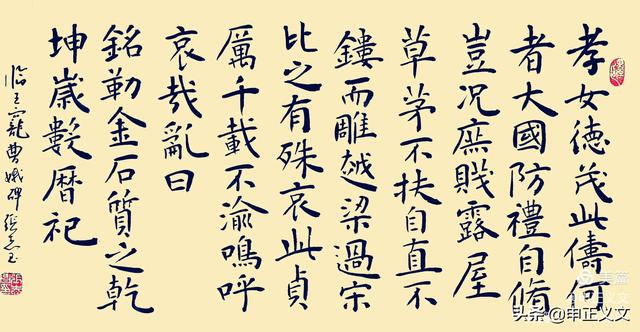 孝女德茂此儔何
者大國防禮自脩
豈況庶賤露屋
草茅不扶自直不
鏤而雕越梁過宋
比之有殊哀此貞
厲千載不渝嗚呼
哀哉亂曰
銘勒金石質之乾
坤歲數暦祀
臨王寵曹娥碑
美篇
头条@申正义文